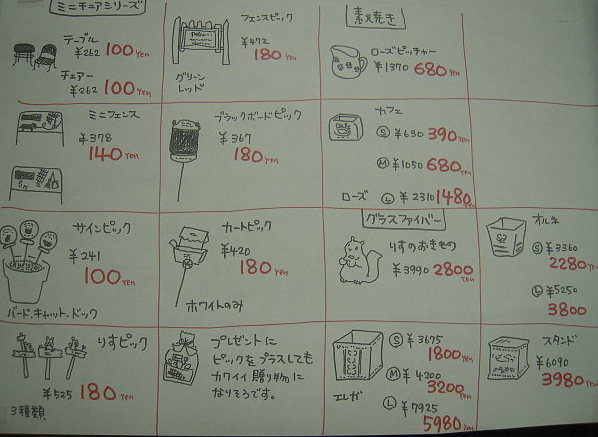 ミニチュアシリーズ
テーブル
¥262 100 YEN
チェアー
¥262 100 YEN
フェンスピック
¥472
180 YEN
グリーン
レッド
素焼き
ローズピッチャー
¥1370 680 YEN
ミニフェンス
¥378
140 YEN
ブラックボードピック
¥367
180 YEN
カフェ
Ⓢ ¥630 390 YEN
Ⓜ ¥1050 680 YEN
ローズ Ⓛ ¥2310 1480 YEN
サインピック
¥241
100 YEN
バード.キャット.ドック
カートピック
¥420
180 YEN
ホワイトのみ
グラスファイバー
りすのおきもの
¥3990 2800 YEN
オルネ
Ⓢ ¥3360
2280 YEN
Ⓛ ¥5250
3800
りすピック
¥525 180 YEN
3種類
プレゼントに
ピックをプラスしても
カワイイ贈り物に
なりそうです。
Ⓢ ¥3675
1800 YEN
Ⓜ ¥4200
3200 YEN
エレガ Ⓛ ¥7925
5980 YEN
スタンド
¥6090
3980 YEN